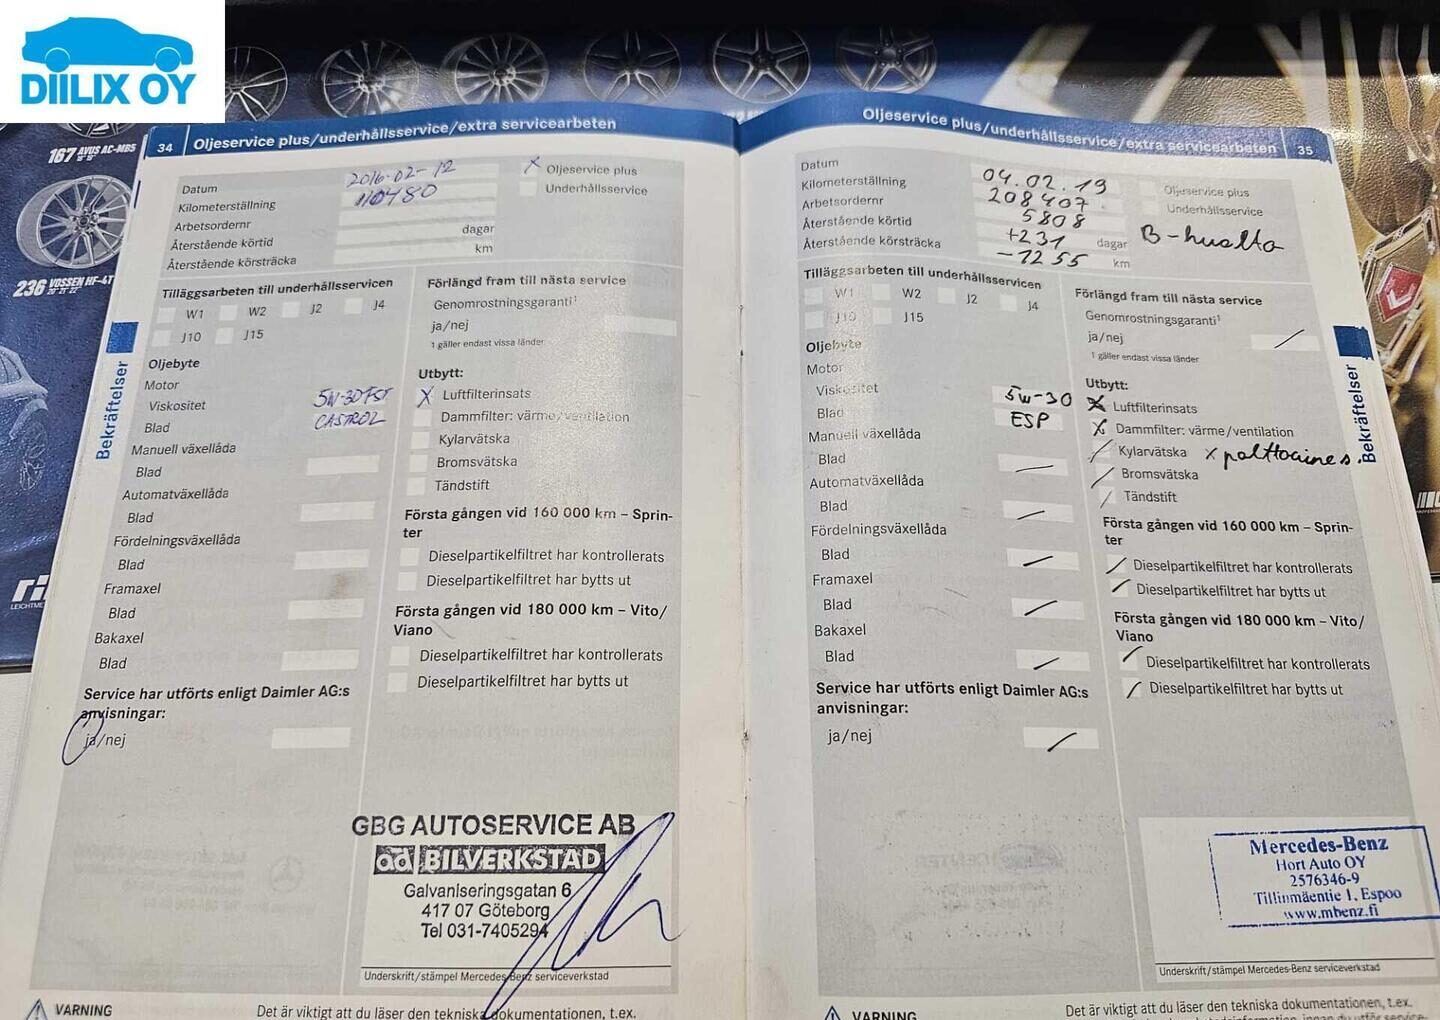 DIILIX OY
167 AVUS AC-MB5
236 VOSSEN HF-4T
34 Oljeservice plus/underhållsservice/extra servicearbeten
Datum 2016-02-12
X Oljeservice plus
Kilometerställning 110480
Underhållsservice
Arbetsordernr
Återstående körtid dagar
Återstående körsträcka km
Tilläggsarbeten till underhållsservicen
W1 W2 J2 J4
J10 J15
Förlängd fram till nästa service
Genomrostningsgaranti¹
ja/nej
¹ gäller endast vissa länder
Oljebyte
Motor
Viskositet 5W-30 FST
Blad CASTROL
Manuell växellåda
Blad
Automatväxellåda
Blad
Fördelningsväxellåda
Blad
Framaxel
Blad
Bakaxel
Blad
Service har utförts enligt Daimler AG:s
anvisningar:
ja/nej
Utbytt:
X Luftfilterinsats
Dammfilter: värme/ventilation
Kylarvätska
Bromsvätska
Tändstift
Första gången vid 160 000 km – Sprin-
ter
Dieselpartikelfiltret har kontrollerats
Dieselpartikelfiltret har bytts ut
Första gången vid 180 000 km – Vito/
Viano
Dieselpartikelfiltret har kontrollerats
Dieselpartikelfiltret har bytts ut
GBG AUTOSERVICE AB
ad BILVERKSTAD
Galvaniseringsgatan 6
417 07 Göteborg
Tel 031-7405294
Underskrift/stämpel Mercedes-Benz serviceverkstad
VARNING
Det är viktigt att du läser den tekniska dokumentationen, t.ex.
Bekräftelser
Oljeservice plus/underhållsservice/extra servicearbeten 35
Datum 04.02.19
Oljeservice plus
Kilometerställning 208407
Underhållsservice
Arbetsordernr 5808
Återstående körtid +231 dagar
B-huolto
Återstående körsträcka -1255 km
Tilläggsarbeten till underhållsservicen
W1 W2 J2 J4
J10 J15
Förlängd fram till nästa service
Genomrostningsgaranti¹
ja/nej
¹ gäller endast vissa länder
Oljebyte
Motor
Viskositet 5W-30
Blad ESP
Manuell växellåda
Blad
Automatväxellåda
Blad
Fördelningsväxellåda
Blad
Framaxel
Blad
Bakaxel
Blad
Service har utförts enligt Daimler AG:s
anvisningar:
ja/nej
Utbytt:
X Luftfilterinsats
X Dammfilter: värme/ventilation
Kylarvätska x polttoaines.
Bromsvätska
Tändstift
Första gången vid 160 000 km – Sprin-
ter
Dieselpartikelfiltret har kontrollerats
Dieselpartikelfiltret har bytts ut
Första gången vid 180 000 km – Vito/
Viano
Dieselpartikelfiltret har kontrollerats
Dieselpartikelfiltret har bytts ut
Mercedes-Benz
Hort Auto OY
2576346-9
Tillinmäentie 1, Espoo
www.mbenz.fi
Underskrift/stämpel Mercedes-Benz serviceverkstad
VARNING
Det är viktigt att du läser den tekniska dokumentationen, t.ex.
Bekräftelser